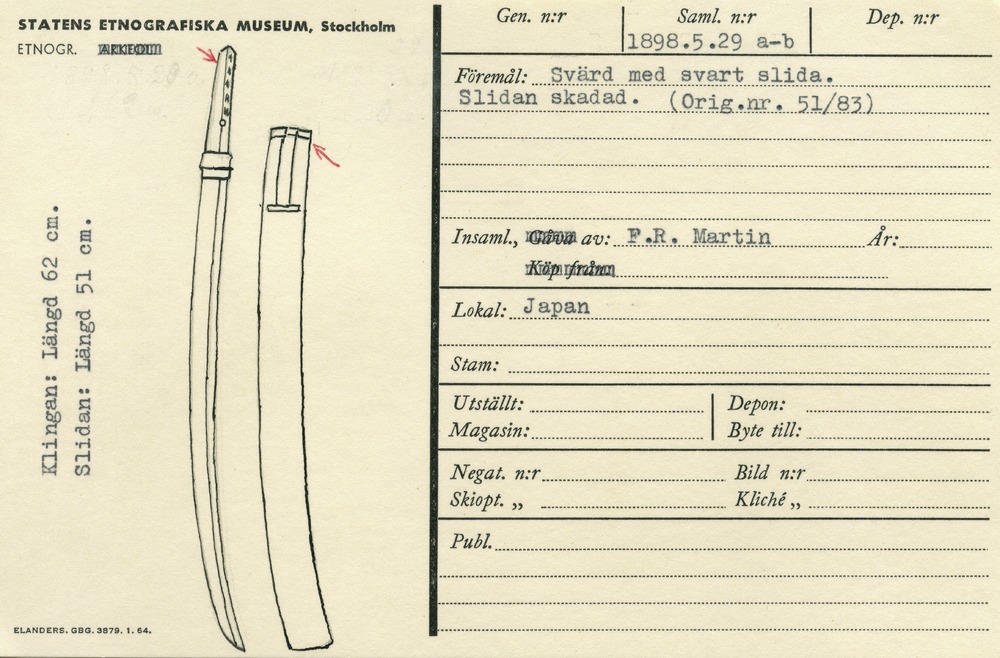 STATENS ETNOGRAFISKA MUSEUM, Stockholm
ETNOGR. ARKEOL.
Klingan: Längd 62 cm.
Slidan: Längd 51 cm.
ELANDERS. GBG. 3879. 1. 64.
Gen. n:r Saml. n:r Dep. n:r
1898.5.29 a-b
Föremål: Svärd med svart slida.
Slidan skadad. (Orig.nr. 51/83)
Insaml., Gåva av: F.R. Martin År:
Köp från:
Lokal: Japan
Stam:
Utställt: Depon:
Magasin: Byte till:
Negat. n:r Bild n:r
Skiopt. „ Kliché „
Publ.